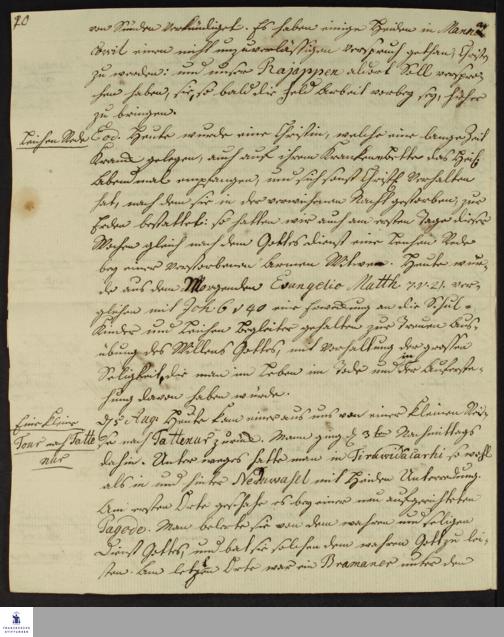 20
von Sünden verkündiget. Es haben einige Heiden in Manna
einen nicht unzuverlässigen Verspruch gethan, Christen
zu werden: und unser Rajappen aldort soll verspro-
chen haben, sie, so bald die Feld Arbeit vorbey sey, hieher
zu bringen.
Leichen Rede
Eod. Heute wurde eine Christin, welche eine lange Zeit
Kranck gelegen, auch auf ihrem Krankenbette das Heil.
Abendmal empfangen, und sich sonst Christl. verhalten
hat, nachdem sie in der verwichenen Nacht gestorben, zur
Erden bestattet: so hatten wir auch am ersten Tage dieser
Wochen gleich nach dem Gottesdienst eine Leichen Rede
bey einer verstorbenen armen Witwe. Heute wur-
de aus dem Morgenden Evangelio Matth. 7. v. 21. ver-
glichen mit Joh. 6 v 40 eine Erweckung an die Schul-
Kinder und Leichen Begleiter gehalten zur treuen Aus-
übung des Willens Gottes, mit Vorhaltung der grossen
Seligkeit, die man im Leben im Tode und in der Auferste-
hung davon haben würde.
Eine kleine
Tour nach Tatte
nur
d. 5t Aug. Heute kam einer aus uns von einer kleinen Rei-
se nach Tattenur zurück. Mann ging d. 3ten Nachmittags
dahin. Unter weges hatte man in Tirkuvidacarhi so wohl
als in und hinter Neduwasel mit Heiden Unterredung.
Am ersten Orte geschahe es bey einer neu aufgerichteten
Pagode. Man belerte sie von dem wahren und seligen
Dienst Gottes, und bat sie solchen dem wahren Gott zu lei-
sten. Am letzten Orte war ein Bramaner unter den
FRANCKESCHE
STIFTUNGEN